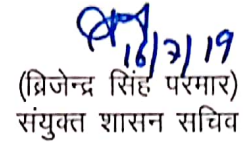 16/7/19
(ब्रिजेन्द्र सिंह परमार)
संयुक्त शासन सचिव